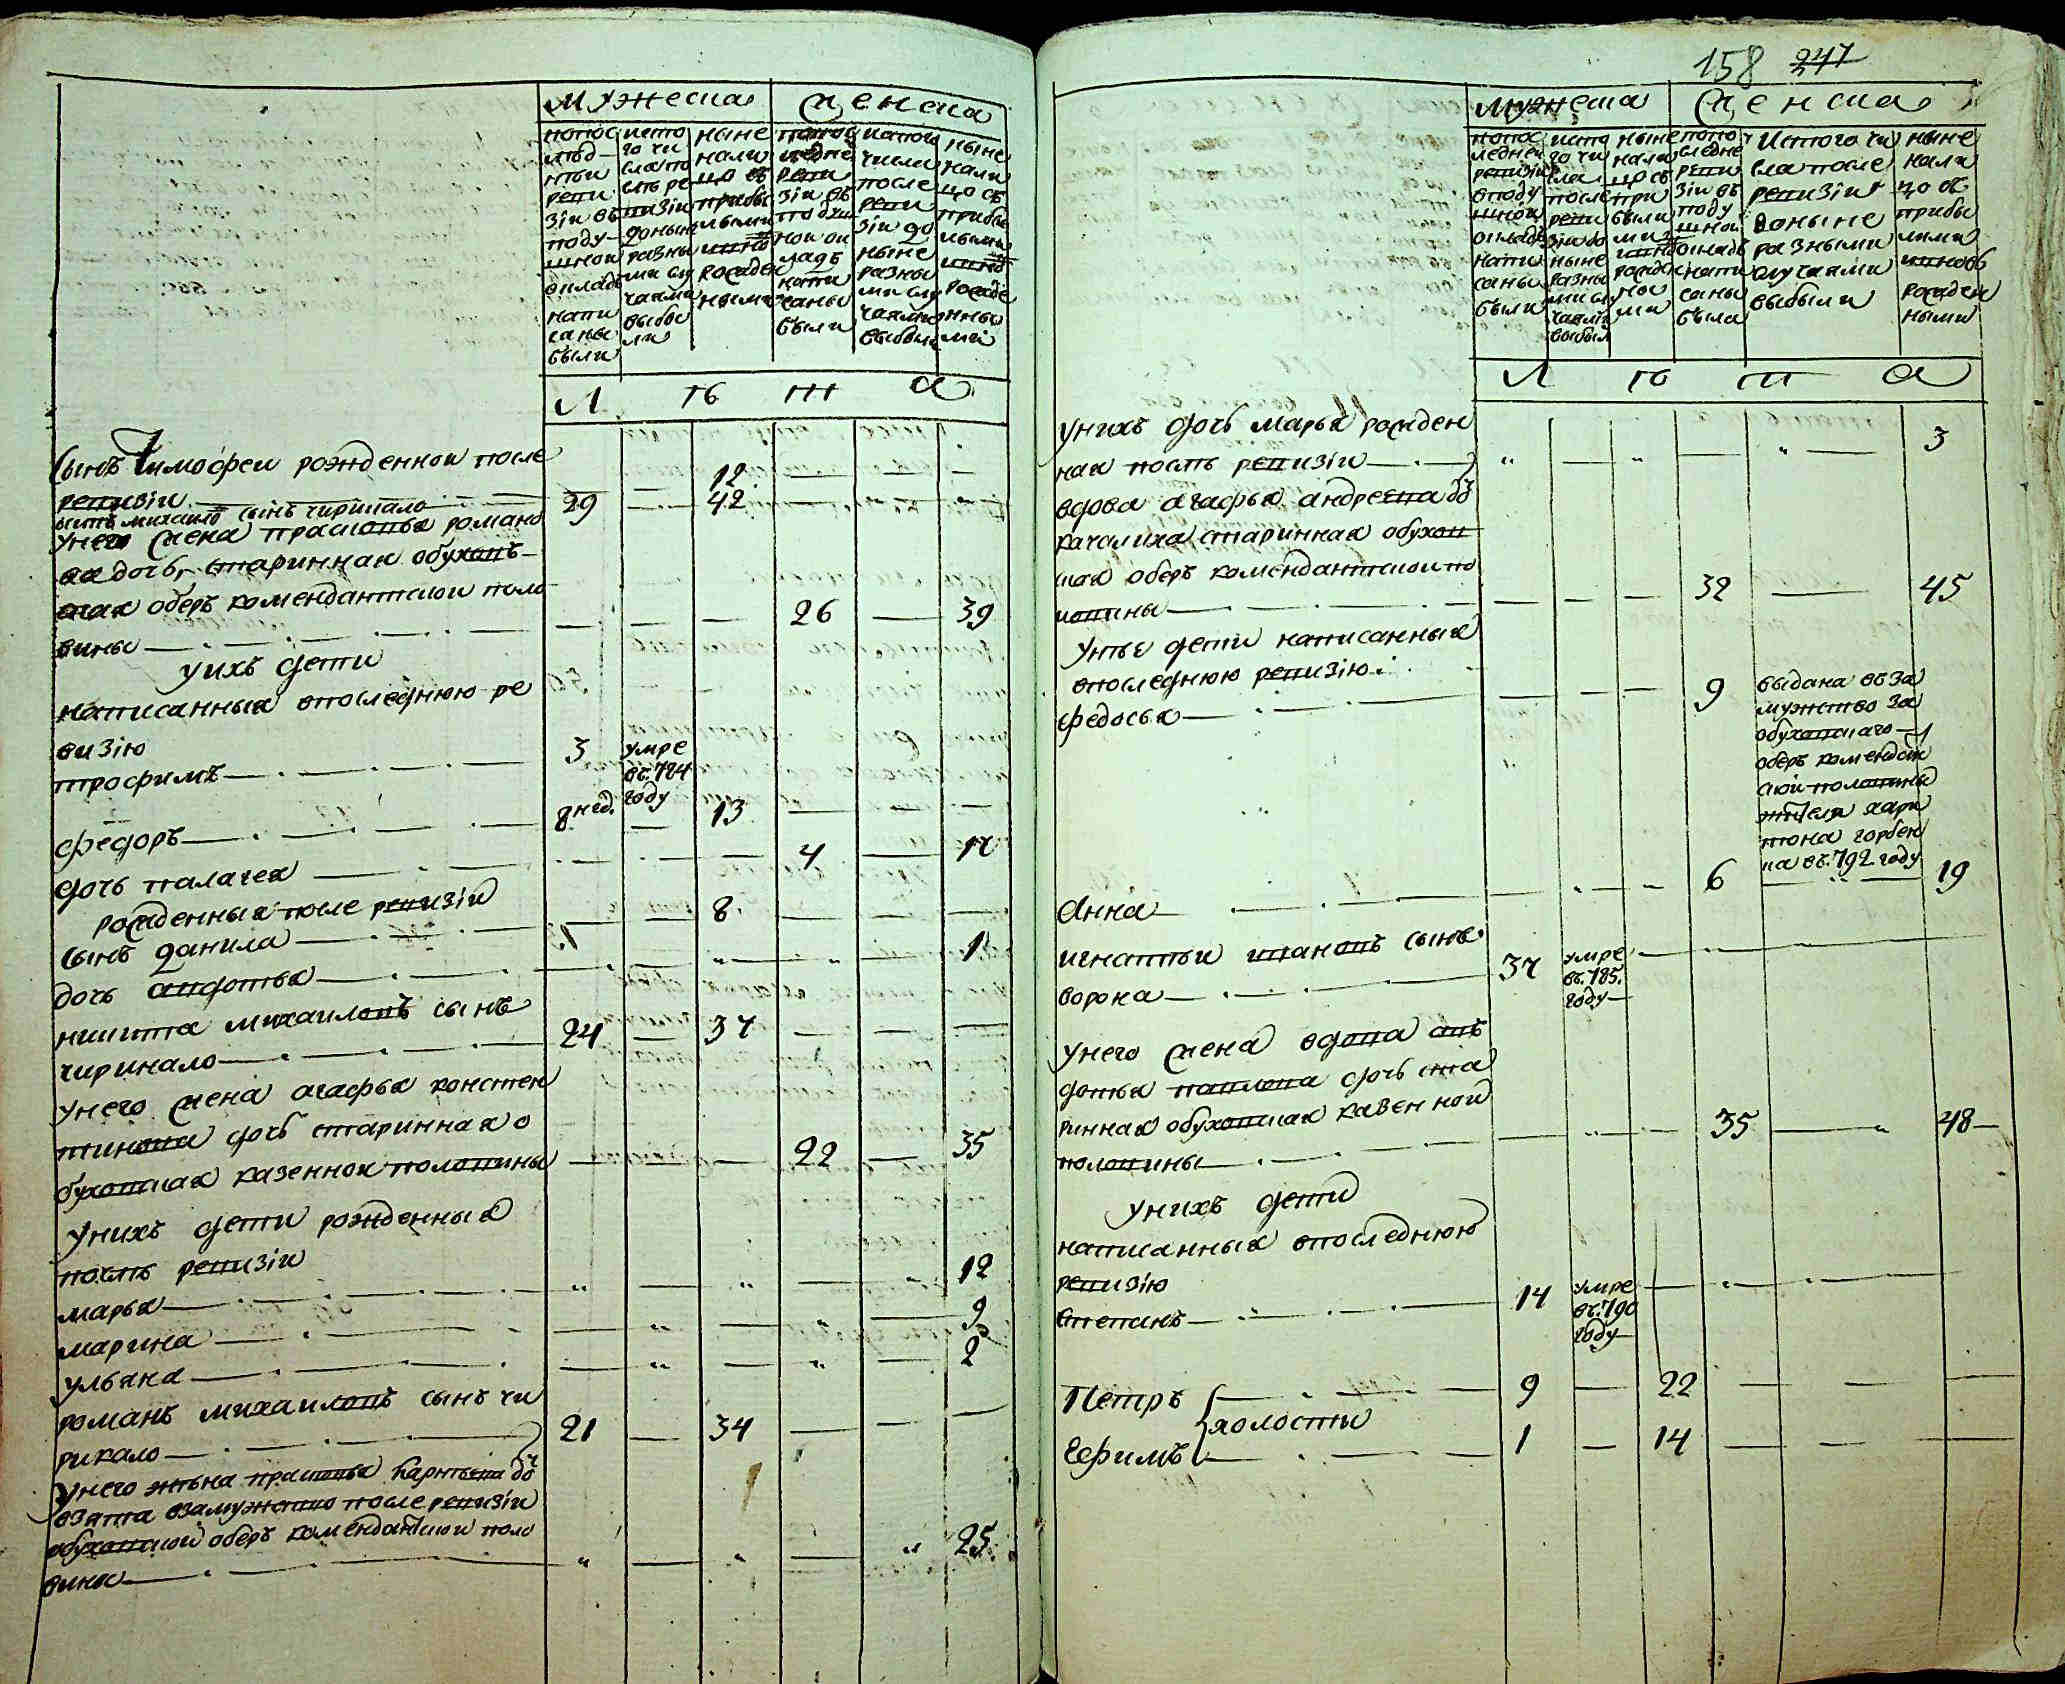 мужеска женска
попос
лѣд
нѣи
реви
зіи въ
поду
шной
окладъ
напи
саны
были
исто
го чи
сла по
слѣ ре
визіи
доныне
разны
ми слу
чаями
выбы
ли
ныне
нали
цо съ
прибы
лыми
и вно
рожден
ными
попос
ледне
реви
зіи въ
подуш
ной ок
ладъ
напи
саны
были
истого
числа
после
реви
зіи до
ныне
разны
ми слу
чаями
выбыли
ныне
нали
цо съ
прибы
лыми
и вно
рожде
нны
ми
л ѣ т а
сынъ Тимофеи рожденной после
ревизіи 12
михаило сынъ чирикало 29 42
унего жена прасковья романо
ва дочь, старинная обуховъ
ская оберъ комендантской поло
вины 26 39
у ихъ дети
написанныя впоследнюю ре
визію
трофимъ 3 умре
въ .784
году
федоръ 8 нед. 13
дочь палагея 4 17
рожденныя после ревизіи
сынъ данила 8
дочь авдотья 1
никита михаиловъ сынъ
чирикало 24 37
унего жена агафья констен
тинова дочь старинная о
буховская казенной половины 22 35
унихъ дети рожденныя
послѣ ревизіи
марья 12
марина 9
ульяна 2
романъ михаиловъ сынъ чи
рикало 21 34
унего жѣна прасковья дочь
взята взамужство после ревизіи
обуховской оберъ комендантской поло
вины 25
158 247
мужеска женска
попос
ледней
ревизіи
вподу
шной
окладъ
напи
саны
были
исто
го чи
сла
после
реви
зіи до
ныне
разны
ми слу
чаями
выбыли
ныне
нали
цо съ
при
были
ми
и вно
рожден
но
ми
попо
следне
реви
зіи въ
поду
шной
окладъ
напи
саны
была
Истого чи
сла после
ревизіи
доныне
разными
случаями
выбыли
ныне
нали
цо съ
прибы
лими
и вновь
рожден
ными
л ѣ т а
унихъ дочь марья рожден
ная послѣ ревизіи 3
вдова агафья андреева доч
качалиха старинная обухов
ская оберъ комендантской по
ловины 32 45
унѣе дети написанныя
впоследнюю ревизію
федосья 9 выдана вза
мужство за
обуховскаго
оберъ комендан
ской половины
жителя хари
тона горбен
ка въ .792 году
Анна 6 19
игнатьи ивановъ сынъ
ворона 37 умре
въ .785.
году
унего жена вдова ав
дотья павлова дочь ста
ринная обуховская казенной
половины 35 48
унихъ дети
написанныя впоследнюю
ревизію
степанъ 14 умре
въ .790
году
Петръ 9 22
холосты
Ефимъ 1 14